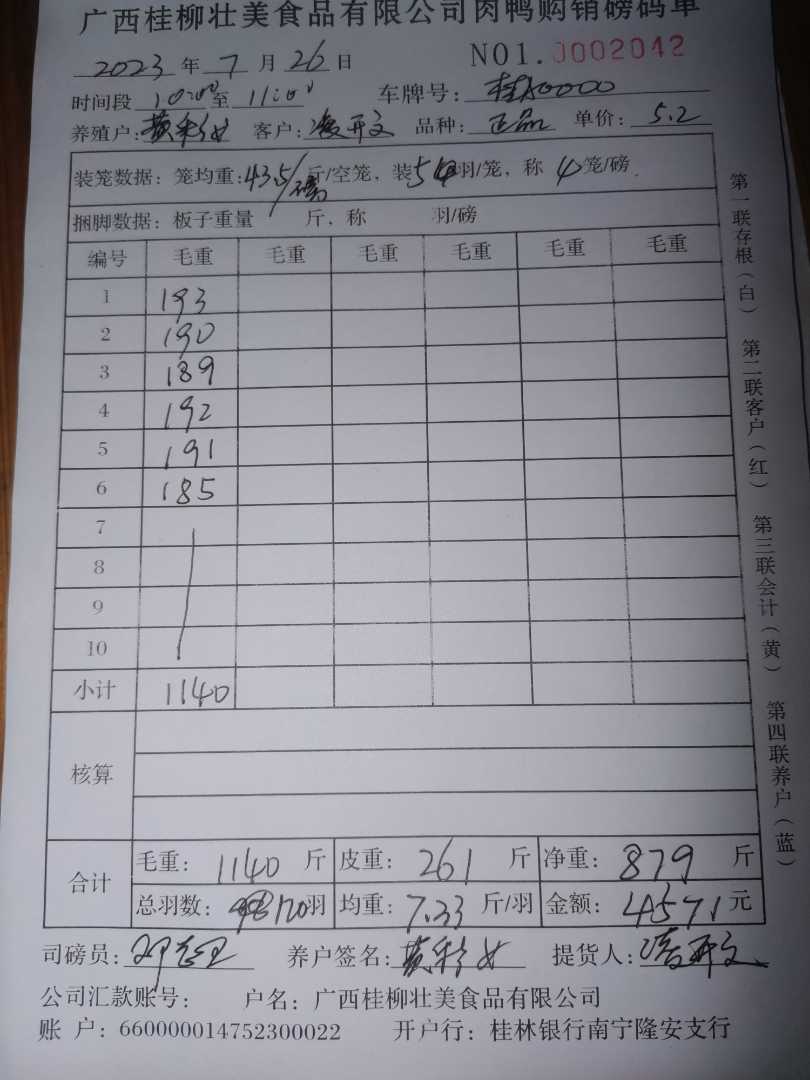 广西桂柳壮美食品有限公司肉鸭购销磅码单
2023 年 7 月 26 日 NO1. 0002042
时间段 10:00 至 11:00 车牌号: 桂A0000
养殖户: 黄彩女 客户: 凌开文 品种: 正品 单价: 5.2
装笼数据: 笼均重: 43.5/磅 斤/空笼, 装 5 羽/笼, 称 4 笼/磅
捆脚数据: 板子重量 斤, 称 羽/磅
编号 毛重 毛重 毛重 毛重 毛重 毛重
1 193
2 190
3 189
4 192
5 191
6 185
7
8
9
10
小计 1140
核算
合计 毛重: 1140 斤 皮重: 261 斤 净重: 879 斤
总羽数: 120 羽 均重: 7.33 斤/羽 金额: 4571 元
司磅员: 养户签名: 黄彩女 提货人: 凌开文
公司汇款账号: 户名: 广西桂柳壮美食品有限公司
账 户: 660000014752300022 开户行: 桂林银行南宁隆安支行
第一联存根(白) 第二联客户(红) 第三联会计(黄) 第四联养户(蓝)